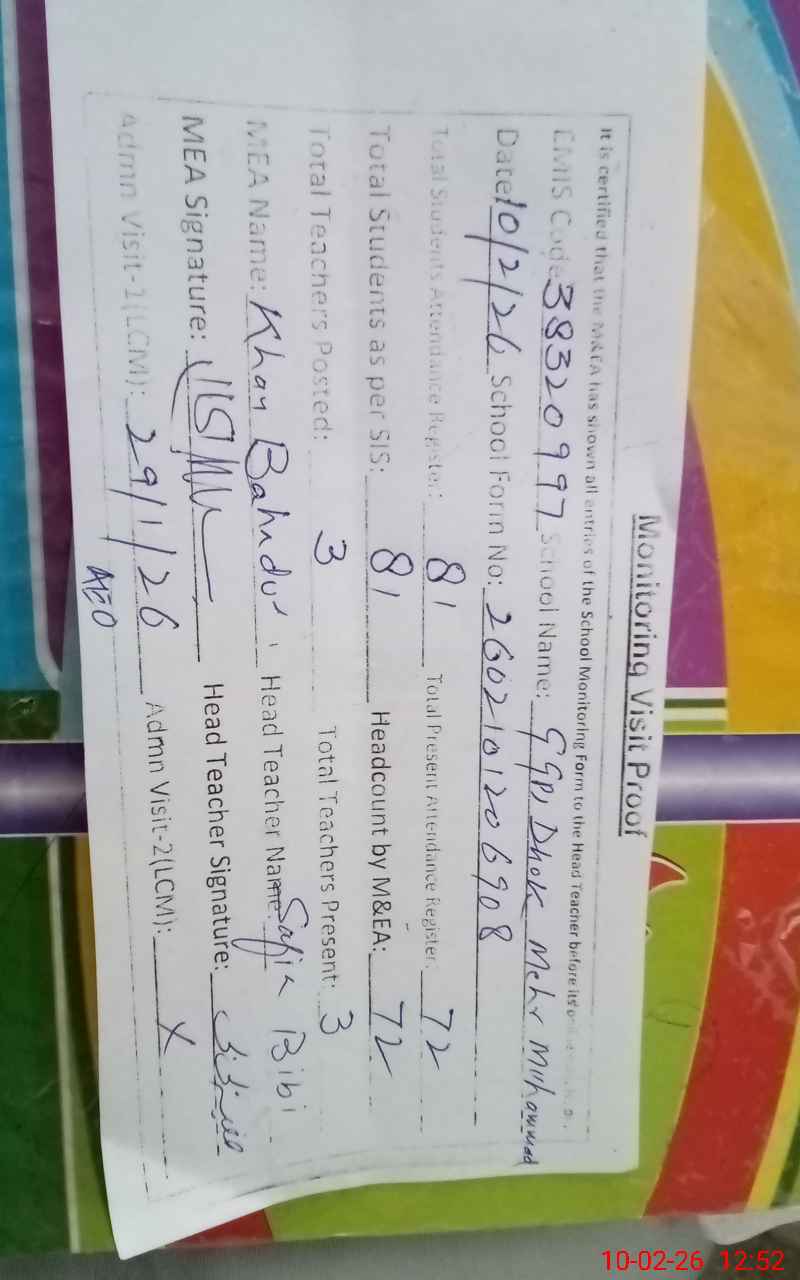 Monitoring Visit Proof
It is certified that the M&EA has shown all entries of the School Monitoring Form to the Head Teacher before its
EMIS Code 38320997 School Name: GGPS Dhok Mehr Muhammad
Date: 10/2/26 School Form No: 2602101206908
Total Students Attendance Register: 81 Total Present Attendance Register: 72
Total Students as per SIS: 81 Headcount by M&EA: 72
Total Teachers Posted: 3 Total Teachers Present: 3
MEA Name: Khan Bahadur Head Teacher Name: Safia Bibi
MEA Signature: Head Teacher Signature:
Admn Visit-1(LCM): 29/1/26 Admn Visit-2(LCM): X
AEO
10-02-26 12:52